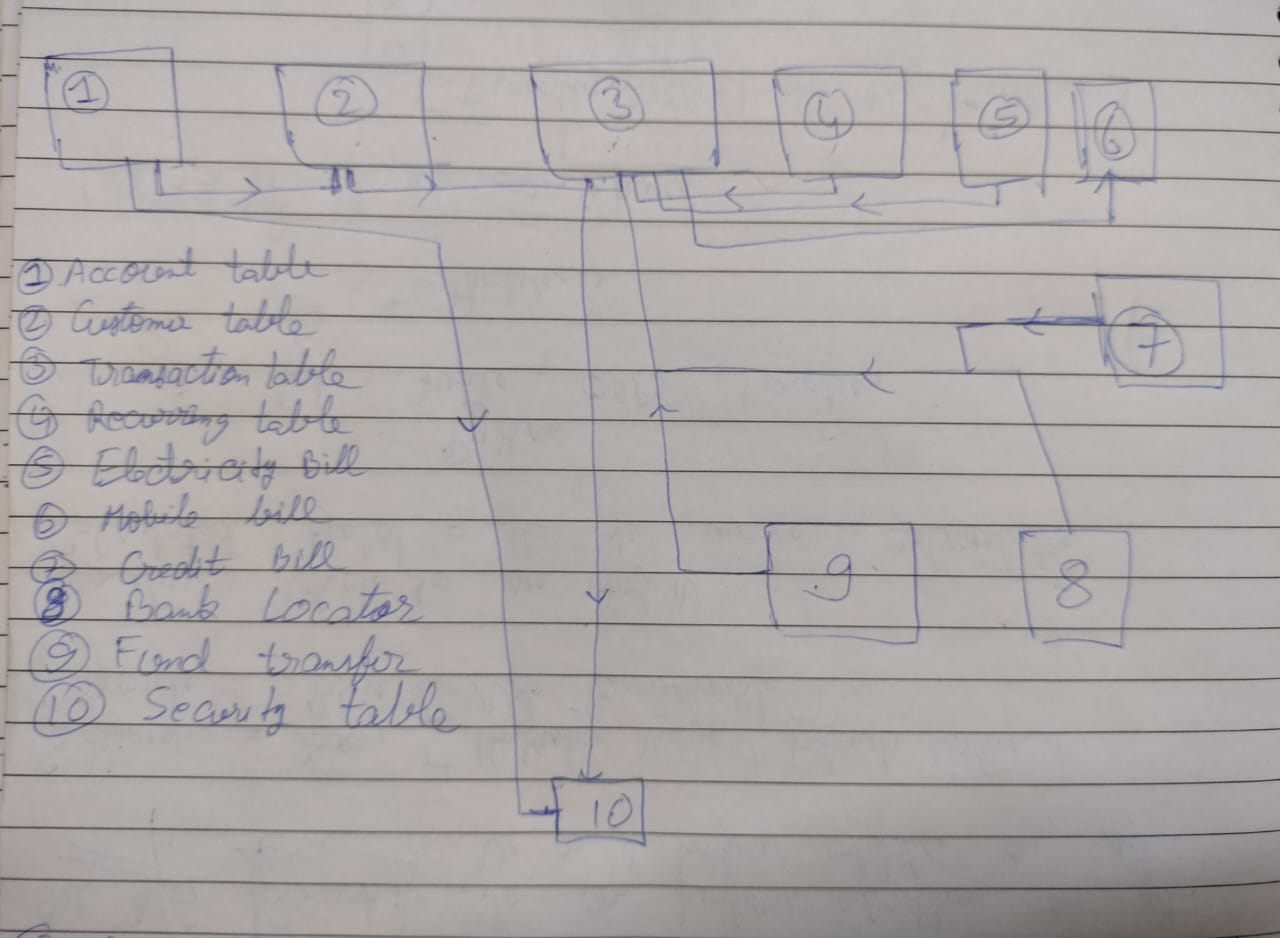 1 2 3 4 5 6
① Account table
② Customer table
③ Transaction table
④ Recurring table
⑤ Electricity Bill
⑥ Mobile bill
⑦ Credit Bill
⑧ Bank Locator
⑨ Fund transfer
⑩ Security table
7
9 8
10